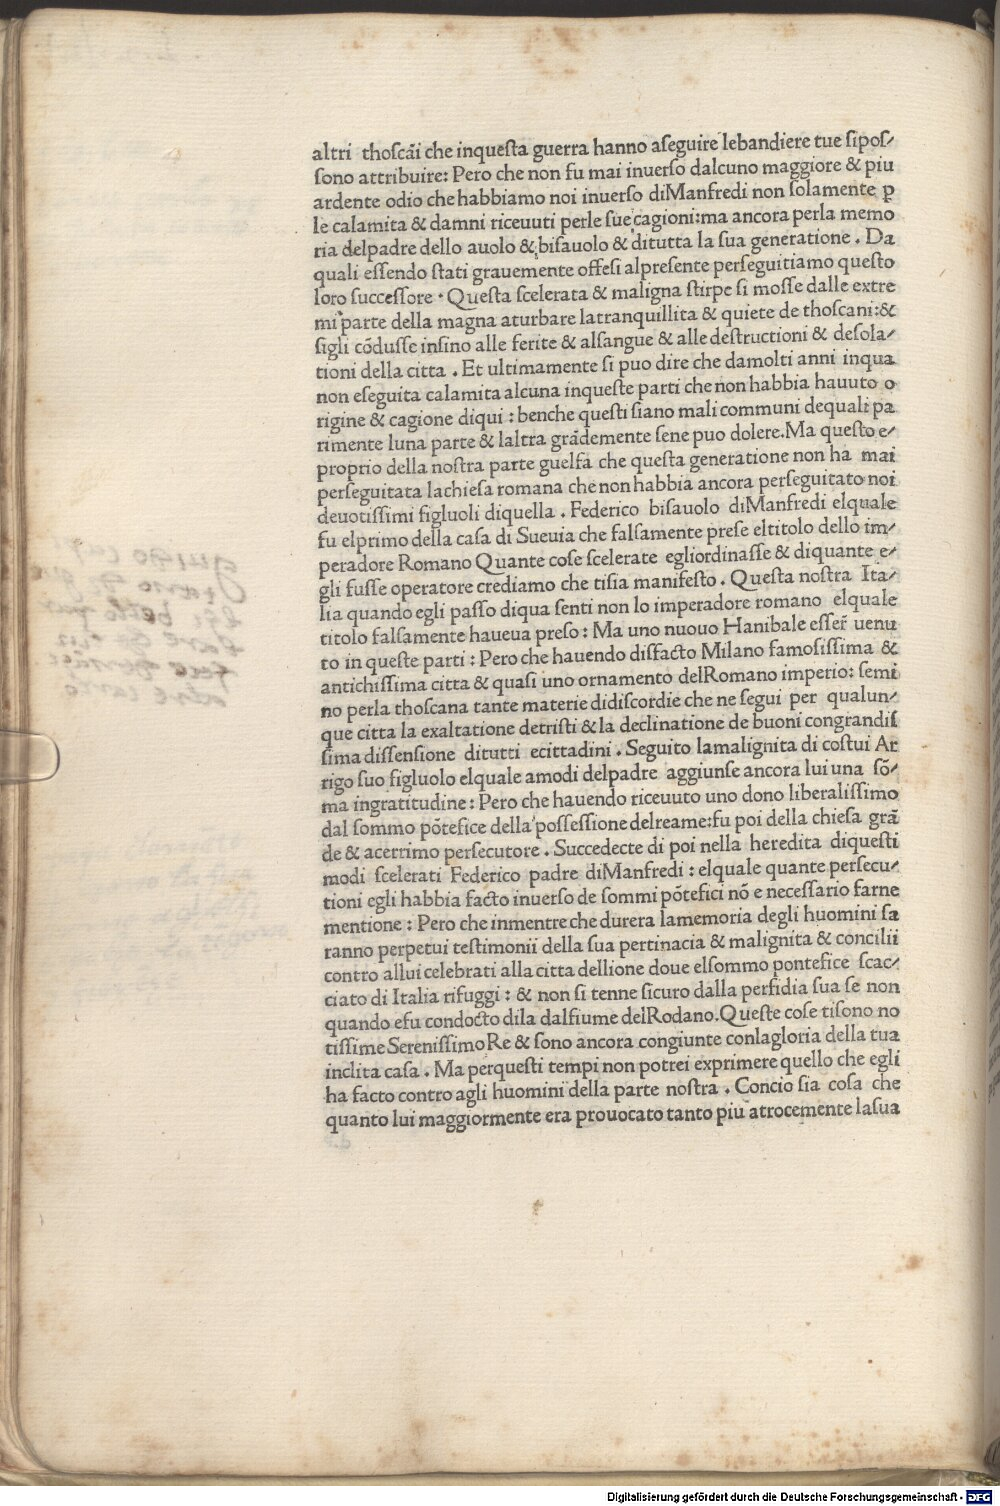 altri thoscãi che inqueſta guerra hanno aſeguire lebandiere tue ſipoſ⸗
ſono attribuire: Pero che non fu mai inuerſo dalcuno maggiore & piu
ardente odio che habbiamo noi inuerſo diManfredi non ſolamente ꝑ
le calamita & damni riceuuti perle ſue cagioni:ma ancora perla memo
ria delpadre dello auolo & biſauolo & ditutta la ſua generatione . Da
quali eſſendo ſtati grauemente offeſi alpreſente perſeguitiamo queſto
loro ſucceſſore . Queſta ſcelerata & maligna ſtirpe ſi moſſe dalle extre
mi parte della magna aturbare latranquillita & quiete de thoſcani:&
ſigli cõduſſe inſino alle ferite & alſangue & alle deſtructioni & deſola⸗
tioni della citta . Et ultimamente ſi puo dire che damolti anni inqua
non eſeguita calamita alcuna inqueſte parti che non habbia hauuto o
rigine & cagione diqui : benche queſti ſiano mali communi dequali pa
rimente luna parte & laltra grãdemente ſene puo dolere.Ma queſto e⸗
proprio della noſtra parte guelfa che queſta generatione non ha mai
perſeguitata lachieſa romana che non habbia ancora perſeguitato noi
deuotiſſimi figluoli diquella . Federico biſauolo diManfredi elquale
fu elprimo della caſa di Sueuia che falſamente preſe eltitolo dello im⸗
peradore Romano Quante coſe ſcelerate egliordinaſſe & diquante e⸗
gli fuſſe operatore crediamo che tiſia manifeſto . Queſta noſtra Ita⸗
lia quando egli paſſo diqua ſenti non lo imperadore romano elquale
titolo falſamente haueua preſo : Ma uno nuouo Hanibale eſſer̃ uenu
to in queſte parti : Pero che hauendo disfacto Milano famoſiſſima &
antichiſſima citta & quaſi uno ornamento delRomano imperio: ſemi
no perla thoſcana tante materie didiſcordie che ne ſegui per qualun⸗
que citta la exaltatione detriſti & la declinatione de buoni congrandiſ
ſima diſſenſione ditutti ecittadini . Seguito lamalignita di coſtui Ar
rigo ſuo figluolo elquale amodi delpadre aggiunſe ancora lui una ſõ⸗
ma ingratitudine : Pero che hauendo riceuuto uno dono liberaliſſimo
dal ſommo põtefice della poſſeſſione delreame:fu poi della chieſa grã
de & acerrimo perſecutore . Succedecte di poi nella heredita diqueſti
modi ſcelerati Federico padre diManfredi : elquale quante perſecu⸗
tioni egli habbia facto inuerſo de ſommi põtefici nõ e neceſſario farne
mentione : Pero che inmentre che durera lamemoria degli huomini ſa
ranno perpetui teſtimonii della ſua pertinacia & malignita & concilii
contro allui celebrati alla citta dellione doue elſommo pontefice ſcac⸗
ciato di Italia rifuggi : & non ſi tenne ſicuro dalla perfidia ſua ſe non
quando efu condocto dila dalfiume delRodano.Queſte coſe tiſono no
tiſſime SereniſſimoRe & ſono ancora congiunte conlagloria della tua
inclita caſa . Ma perqueſti tempi non potrei exprimere quello che egli
ha facto contro agli huomini della parte noſtra . Concio ſia coſa che
quanto lui maggiormente era prouocato tanto piu atrocemente laſua
Digitalisierung gefördert durch die Deutsche Forschungsgemeinschaft - DFG